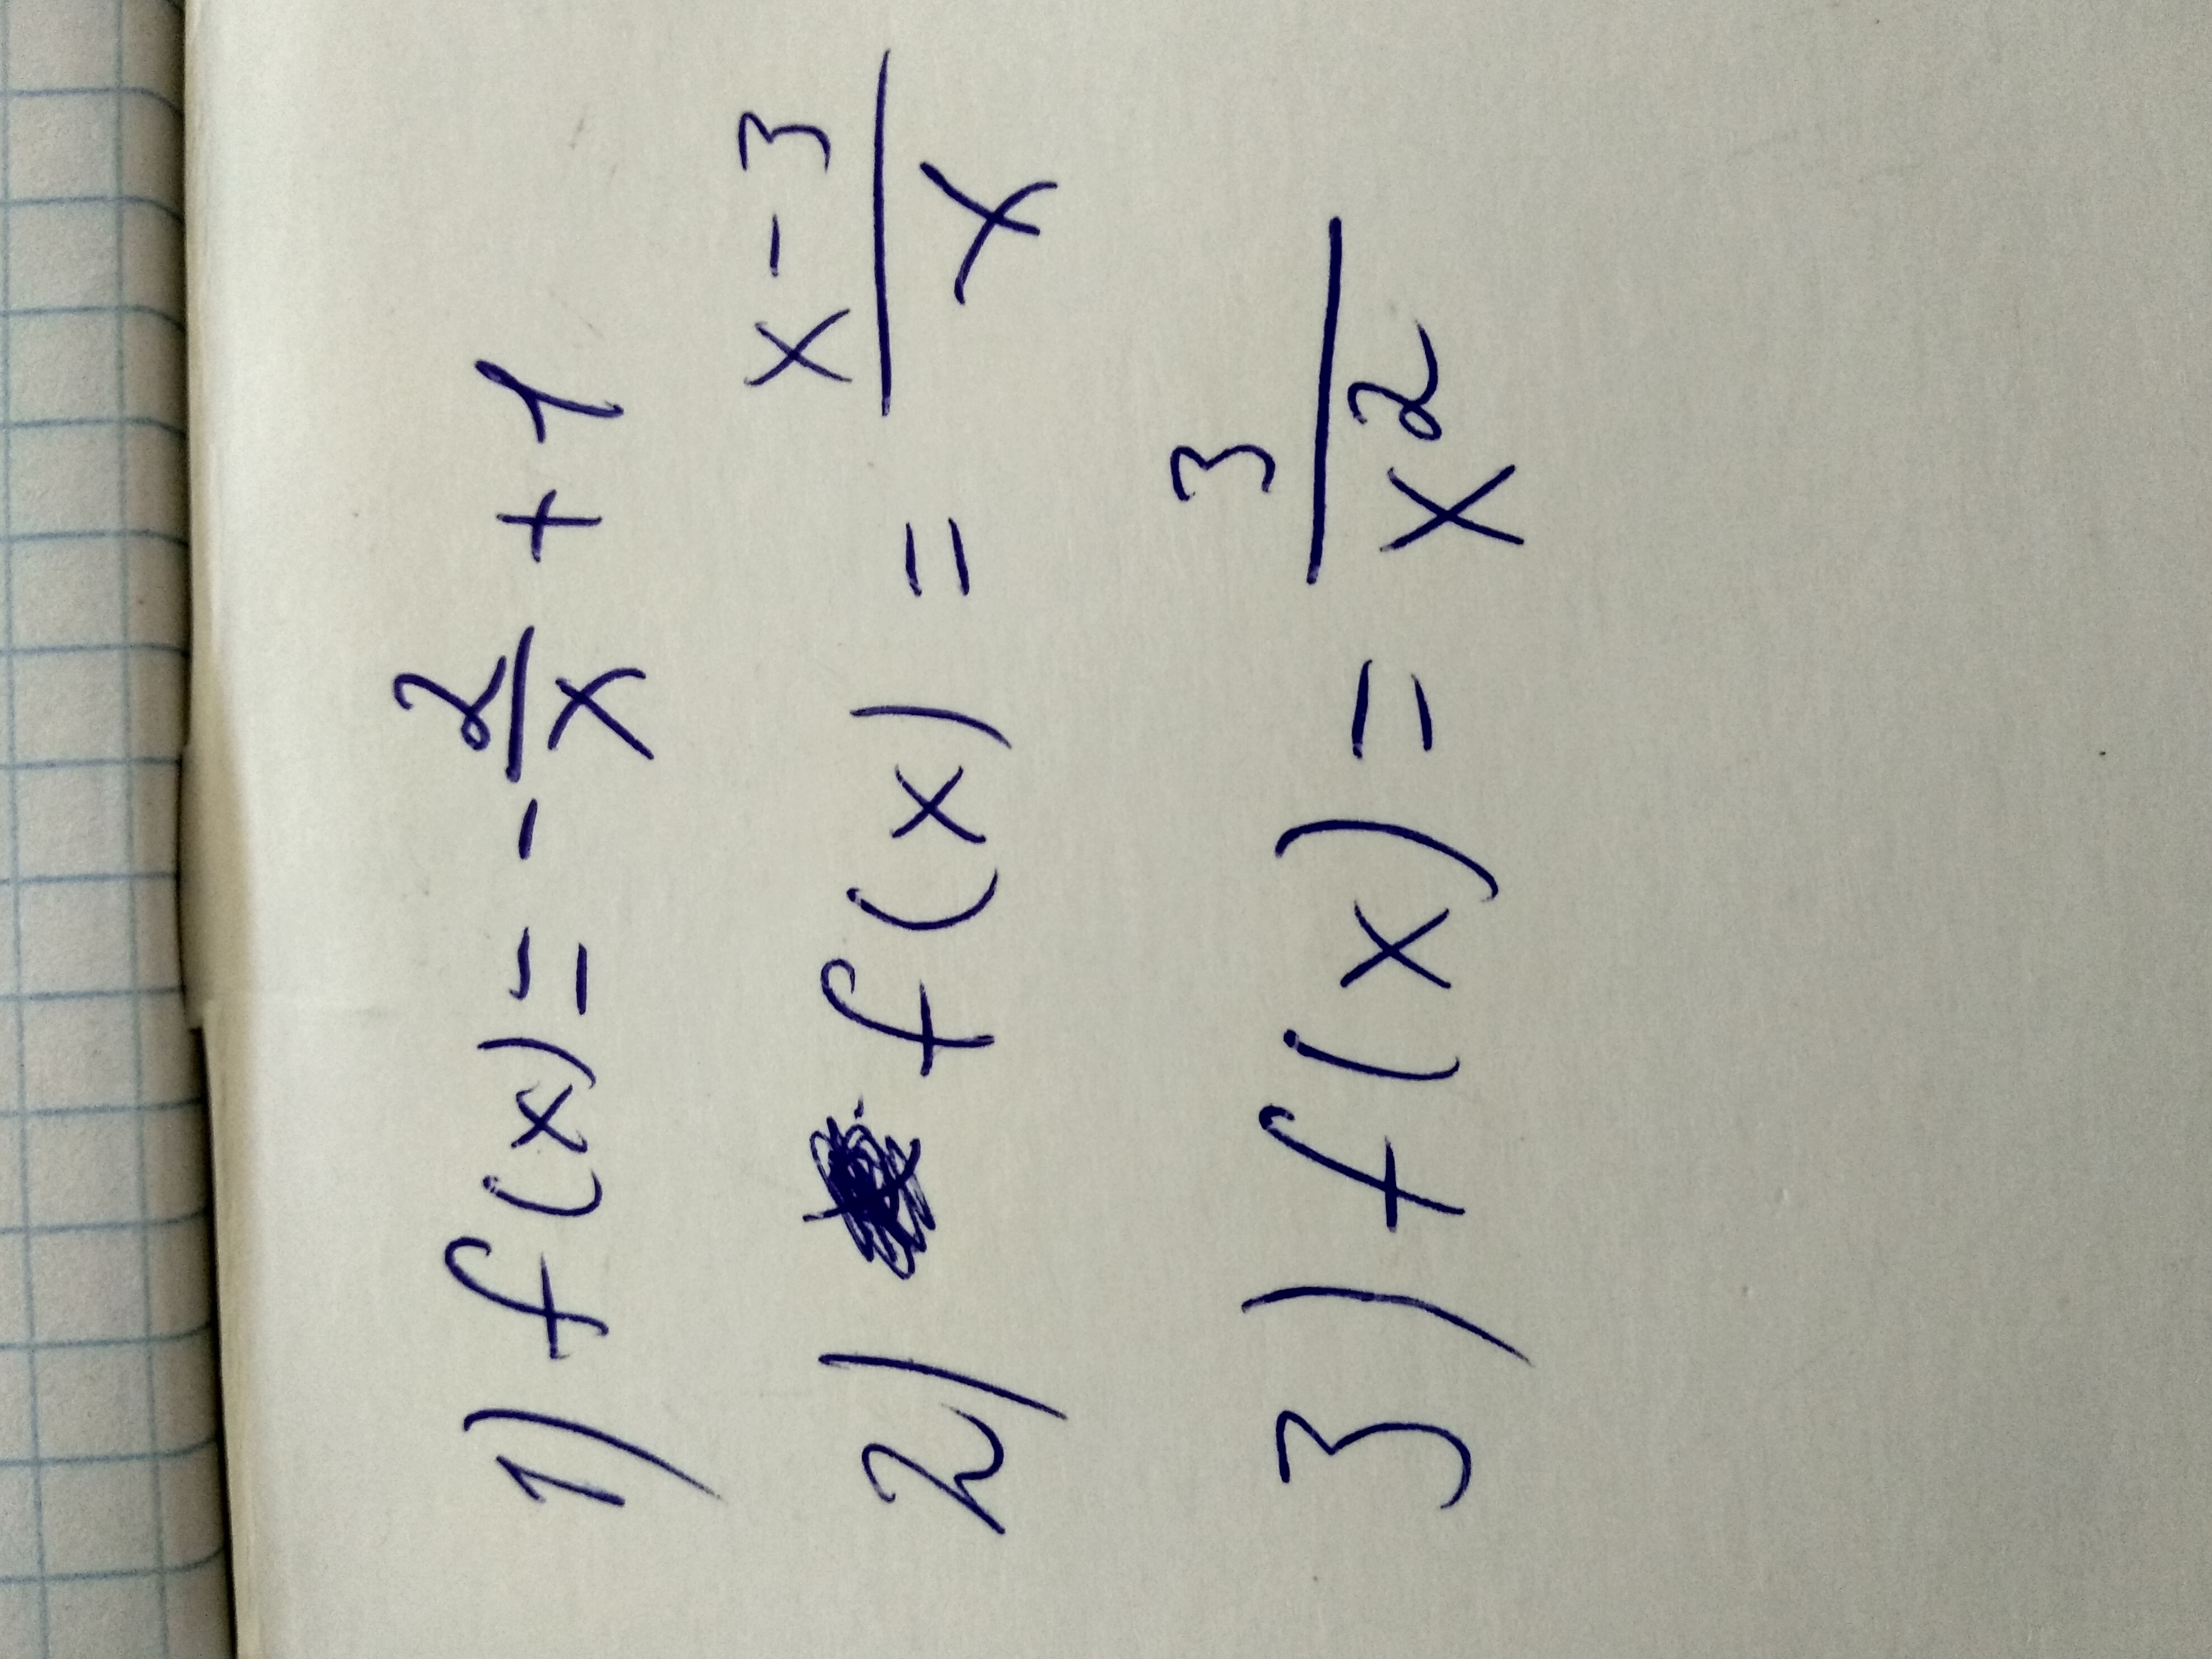 1) f(x) = - 2/x + 1
2) f(x) = x-3/x
3) f(x) = 3/x²